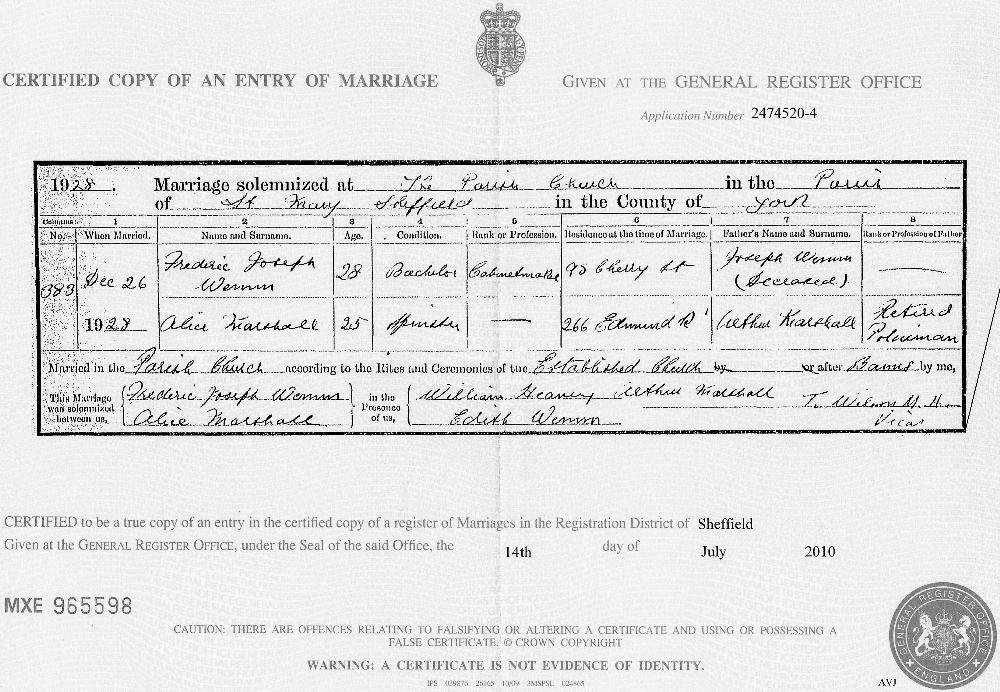 CERTIFIED COPY OF AN ENTRY OF MARRIAGE
GIVEN AT THE GENERAL REGISTER OFFICE
Application Number 2474520-4
1928. Marriage solemnized at The Parish Church in the Parish
of St Mary Sheffield in the County of York
Columns:- 1 2 3 4 5 6 7 8
No. When Married. Name and Surname. Age. Condition. Rank or Profession. Residence at the time of Marriage. Father's Name and Surname. Rank or Profession of Father
383 Dec 26 Frederic Joseph Wemm 28 Bachelor Cabinetmaker 90 Cherry St Joseph Wemm (Deceased) ——
1928 Alice Marshall 25 Spinster —— 266 Edmund Rd Arthur Marshall Retired Policeman
Married in the Parish Church according to the Rites and Ceremonies of the Established Church by or after Banns by me,
This Marriage was solemnized between us, Frederic Joseph Wemm in the Presence of us, William Arthur Marshall
Alice Marshall Edith Wemm Vicar
CERTIFIED to be a true copy of an entry in the certified copy of a register of Marriages in the Registration District of Sheffield
Given at the GENERAL REGISTER OFFICE, under the Seal of the said Office, the 14th day of July 2010
MXE 965598
CAUTION: THERE ARE OFFENCES RELATING TO FALSIFYING OR ALTERING A CERTIFICATE AND USING OR POSSESSING A
FALSE CERTIFICATE. © CROWN COPYRIGHT
WARNING: A CERTIFICATE IS NOT EVIDENCE OF IDENTITY.
IPS 039876 26165 10/09 3MSPSL 024865
AVJ
GENERAL REGISTER OFFICE
ENGLAND